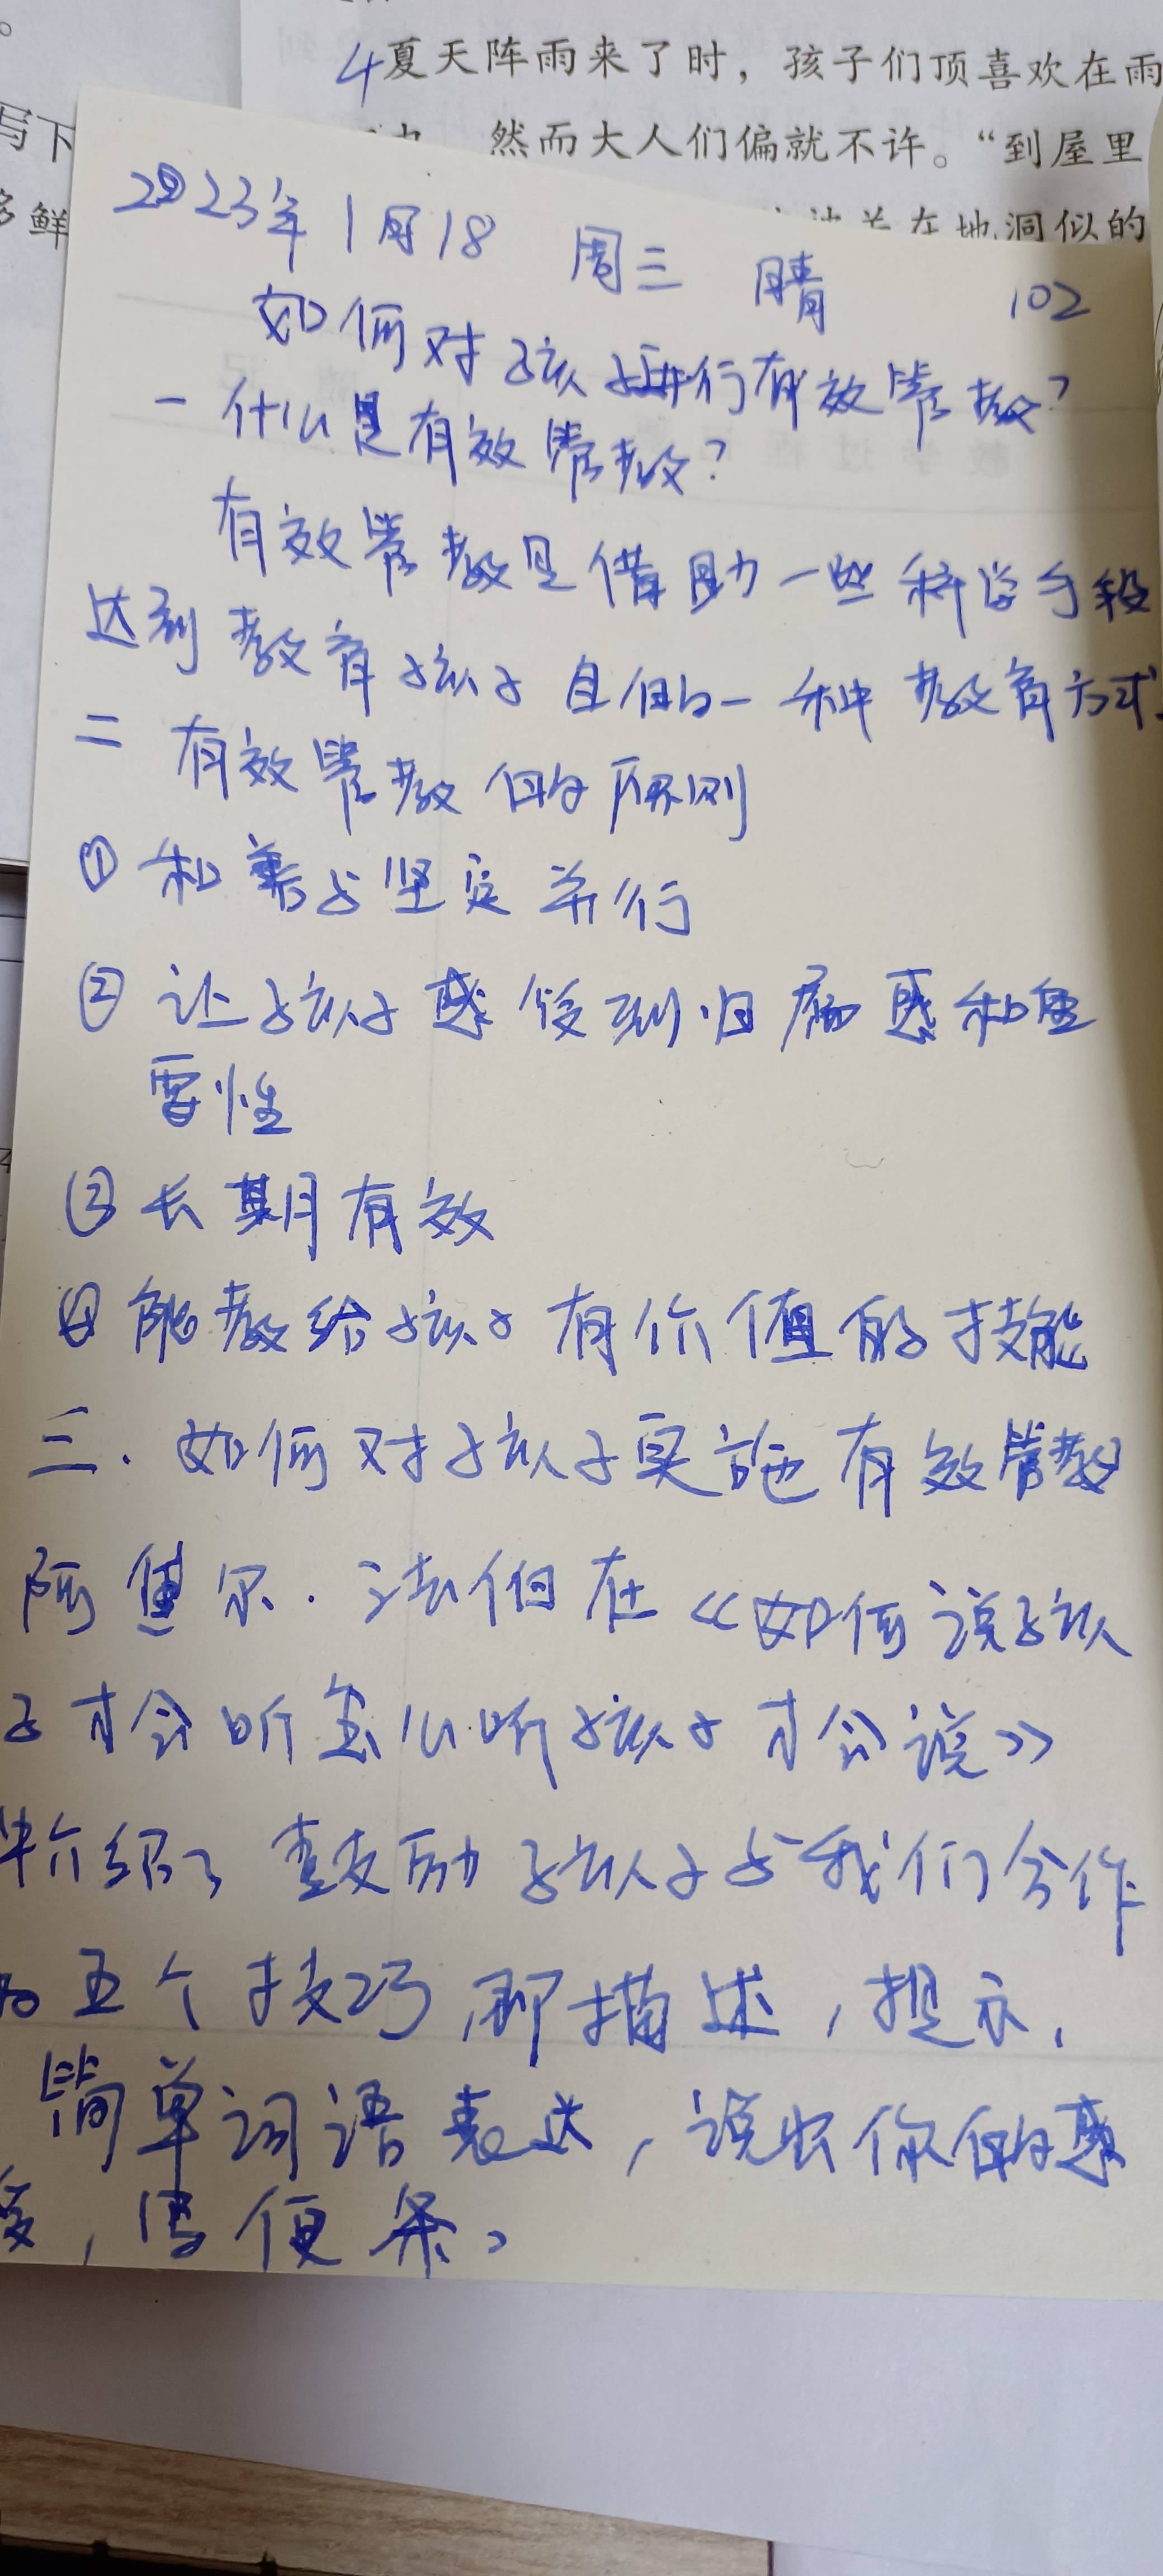 。
4夏天阵雨来了时，孩子们顶喜欢在雨
写下
然而大人们偏就不许。“到屋里
多鲜
在地洞似的
2023年1月18 周三 晴 102
如何对孩子进行有效管教？
一什么是有效管教？
有效管教是借助一些科学手段
达到教育孩子目的一种教育方式.
二 有效管教的原则
① 和善与坚定并行
② 让孩子感受到归属感和重
要性
③ 长期有效
④ 能教给孩子有价值的技能
三. 如何对孩子实施有效管教
阿黛尔.法伯在《如何说孩
子才会听怎么听孩子才会说》
中介绍了鼓励孩子与我们合作
的五个技巧,即描述,提示,
简单词语表达,说出你的感
受,写便条。